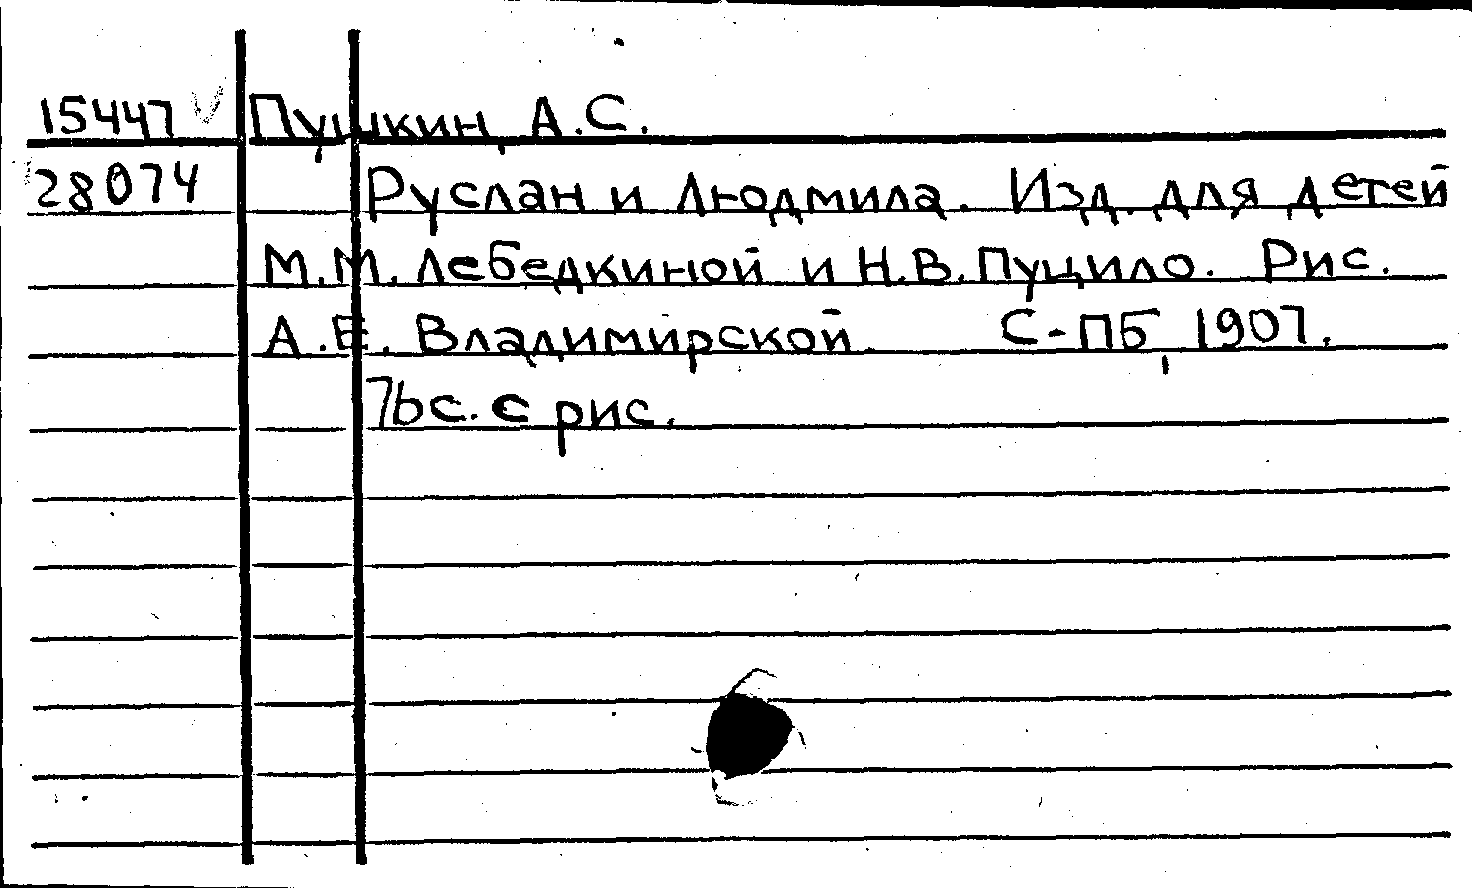 15447 Пушкин, А.С.
28074 Руслан и Людмила. Изд. для детей
М.М. Лебедкиной и Н.В. Пуцило. Рис.
А.Е. Владимирской. С-ПБ, 1907.
76с. с рис.